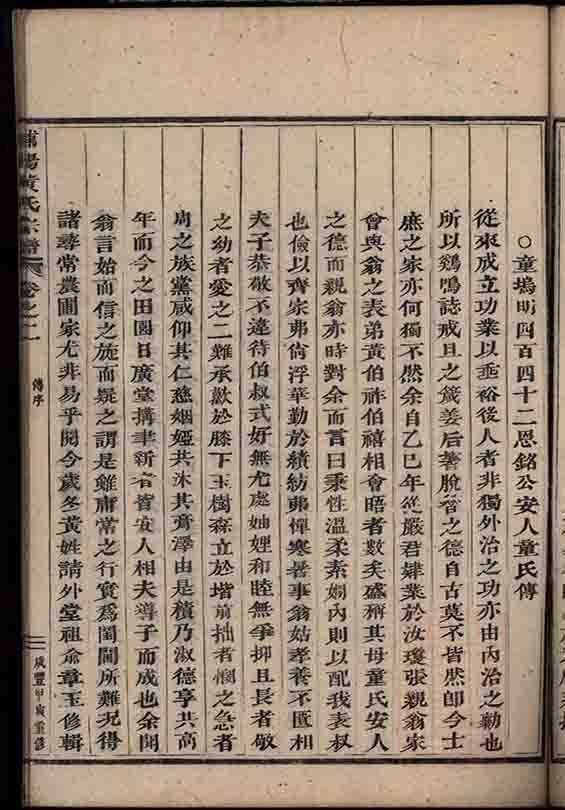 ○童塢明四百四十二恩銘公安人童氏傳
從來成立功業以垂裕後人者非獨外治之功亦由內治之勷也
所以鷄鳴誌戒旦之箴姜后著脫簪之德自古莫不皆然卽今士
庶之家亦何獨不然余自乙巳年從嚴君肄業於汝瓊張親翁家
會與翁之表弟黃伯祚伯禧相會晤者數矣盛稱其母童氏安人
之德而親翁亦時對余而言曰秉性溫柔素嫻內則以配我表叔
也儉以齊家弗尙浮華勤於績紡弗憚寒暑事翁姑孝養不匱相
夫子恭敬不違待伯叔式好無尤處妯娌和睦無爭抑且長者敬
之幼者愛之二難承歡於膝下玉樹森立於堦前拙者憫之急者
周之族黨咸仰其仁慈姻婭共沐其膏澤由是積乃淑德享其高
年而今之田園日廣堂搆聿新者皆安人相夫導子而成也余聞
翁言始而信之旋而疑之謂是雖庸常之行實爲閨閫所難況得
諸尋常農圃家尤非易乎閱今歲冬黃姓請外堂祖侖章玉修輯
浦陽黃氏宗譜
卷之二
傳序
咸豐甲寅重修